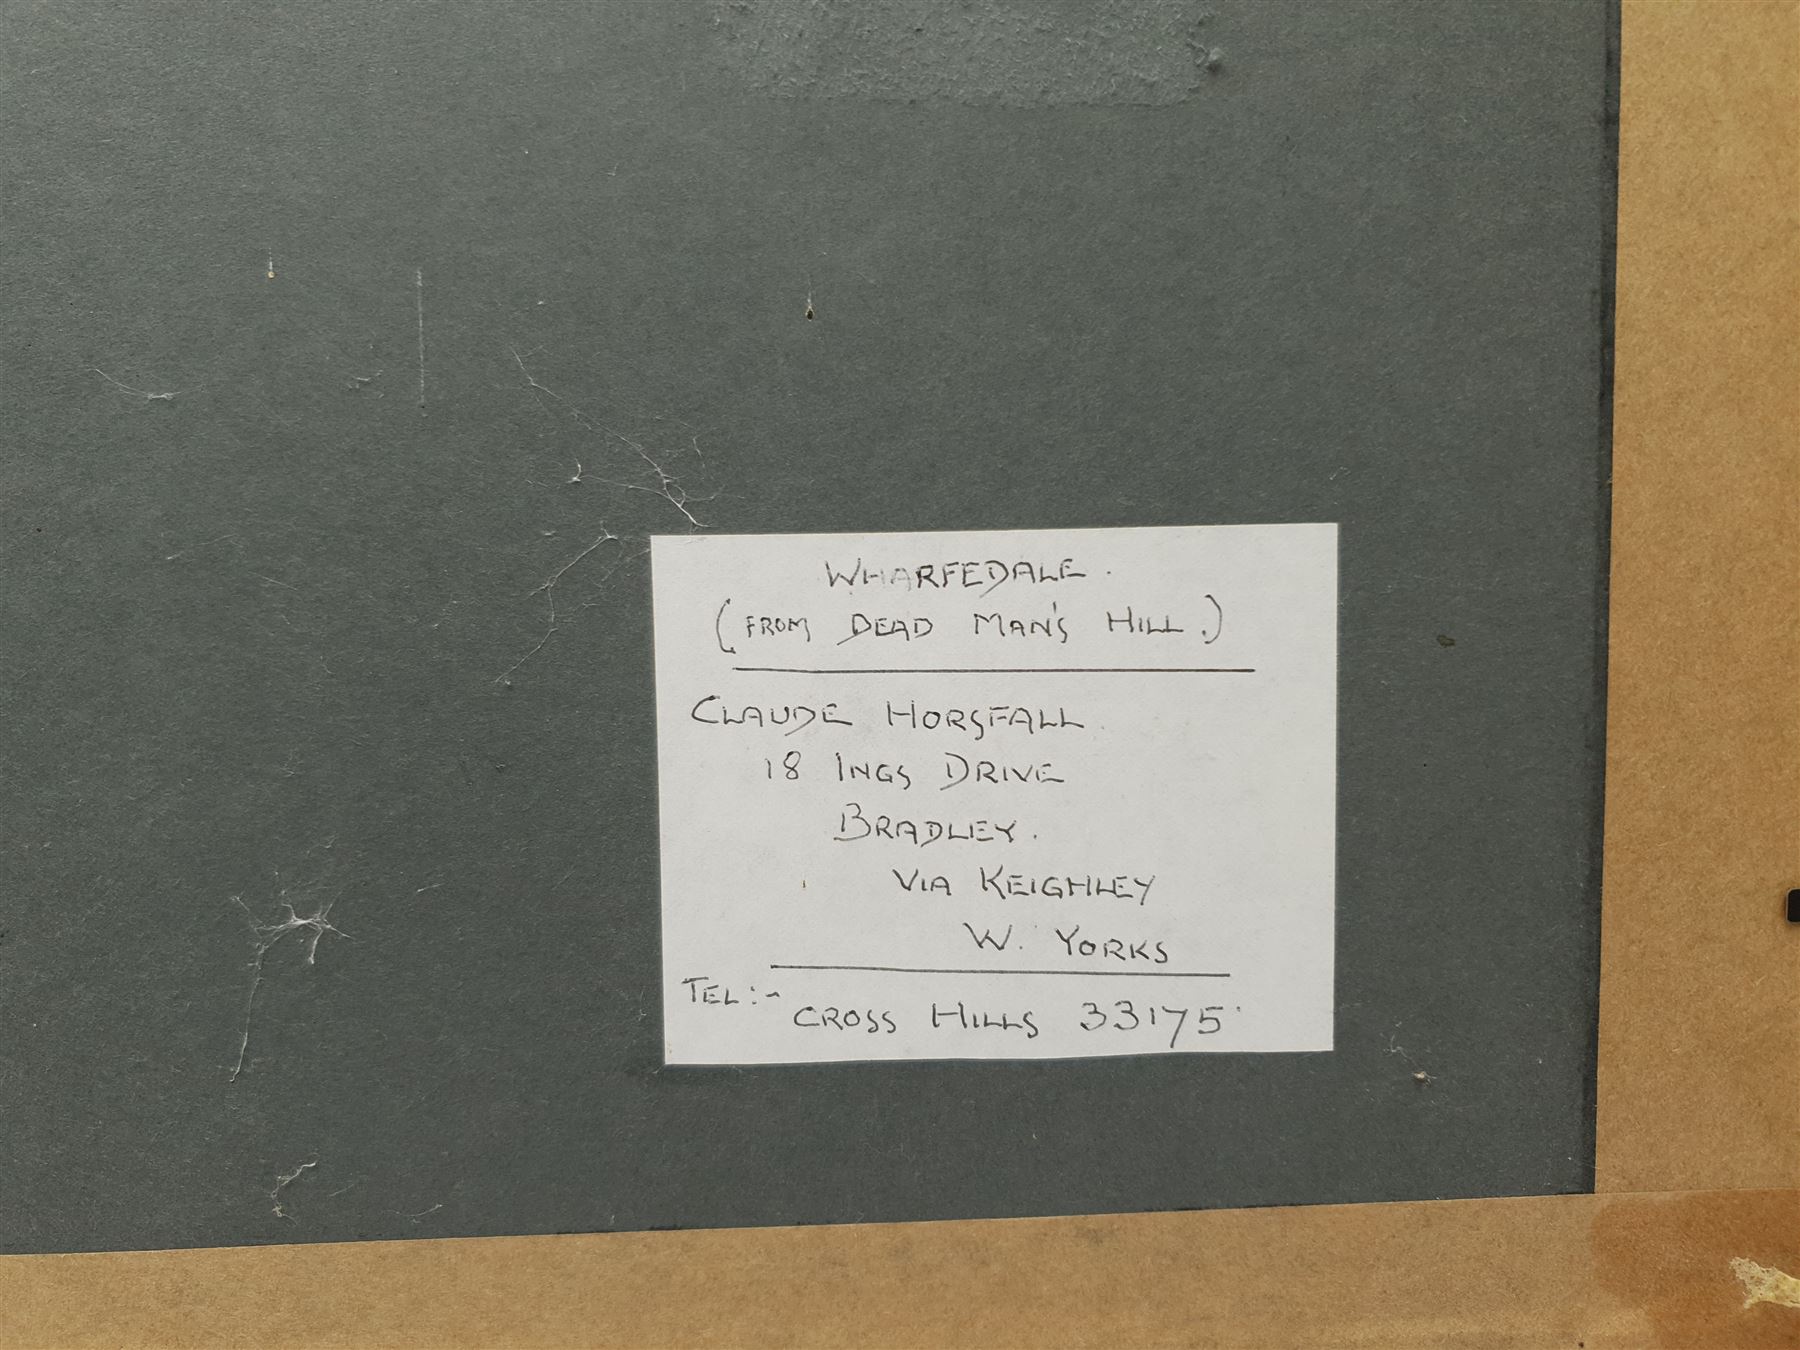 WHARFEDALE.
(FROM DEAD MAN'S HILL.)
CLAUDE HORSFALL.
18 INGS DRIVE
BRADLEY.
VIA KEIGHLEY
W. YORKS
TEL:-
CROSS HILLS 33175.